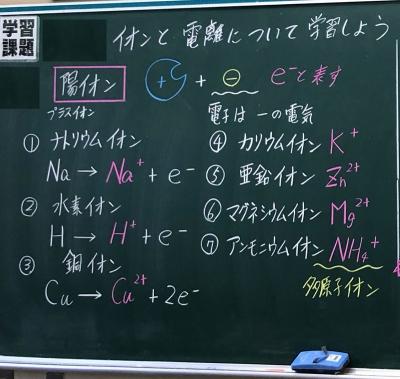 学習課題
イオンと電離について学習しよう
陽イオン + + − e⁻と表す
プラスイオン
電子は −の電気
① ナトリウムイオン
Na → Na⁺ + e⁻
② 水素イオン
H → H⁺ + e⁻
③ 銅イオン
Cu → Cu²⁺ + 2e⁻
④ カリウムイオン K⁺
⑤ 亜鉛イオン Zn²⁺
⑥ マグネシウムイオン Mg²⁺
⑦ アンモニウムイオン NH₄⁺
多原子イオン